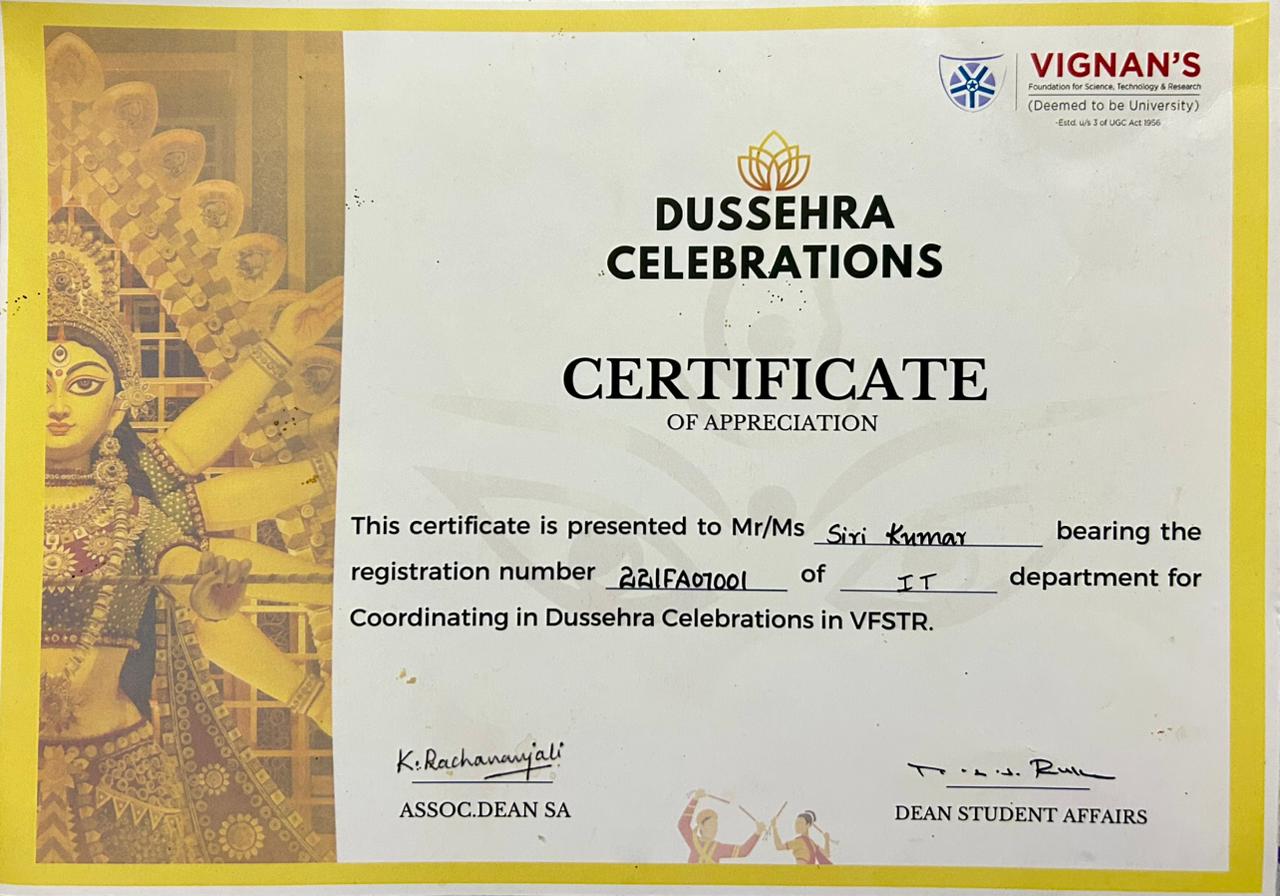 VIGNAN'S
Foundation for Science, Technology & Research
(Deemed to be University)
-Estd. u/s 3 of UGC Act 1956
DUSSEHRA
CELEBRATIONS
CERTIFICATE
OF APPRECIATION
This certificate is presented to Mr/Ms Siri Kumar bearing the
registration number 221FA07001 of IT department for
Coordinating in Dussehra Celebrations in VFSTR.
K. Rachananjali
ASSOC.DEAN SA
DEAN STUDENT AFFAIRS